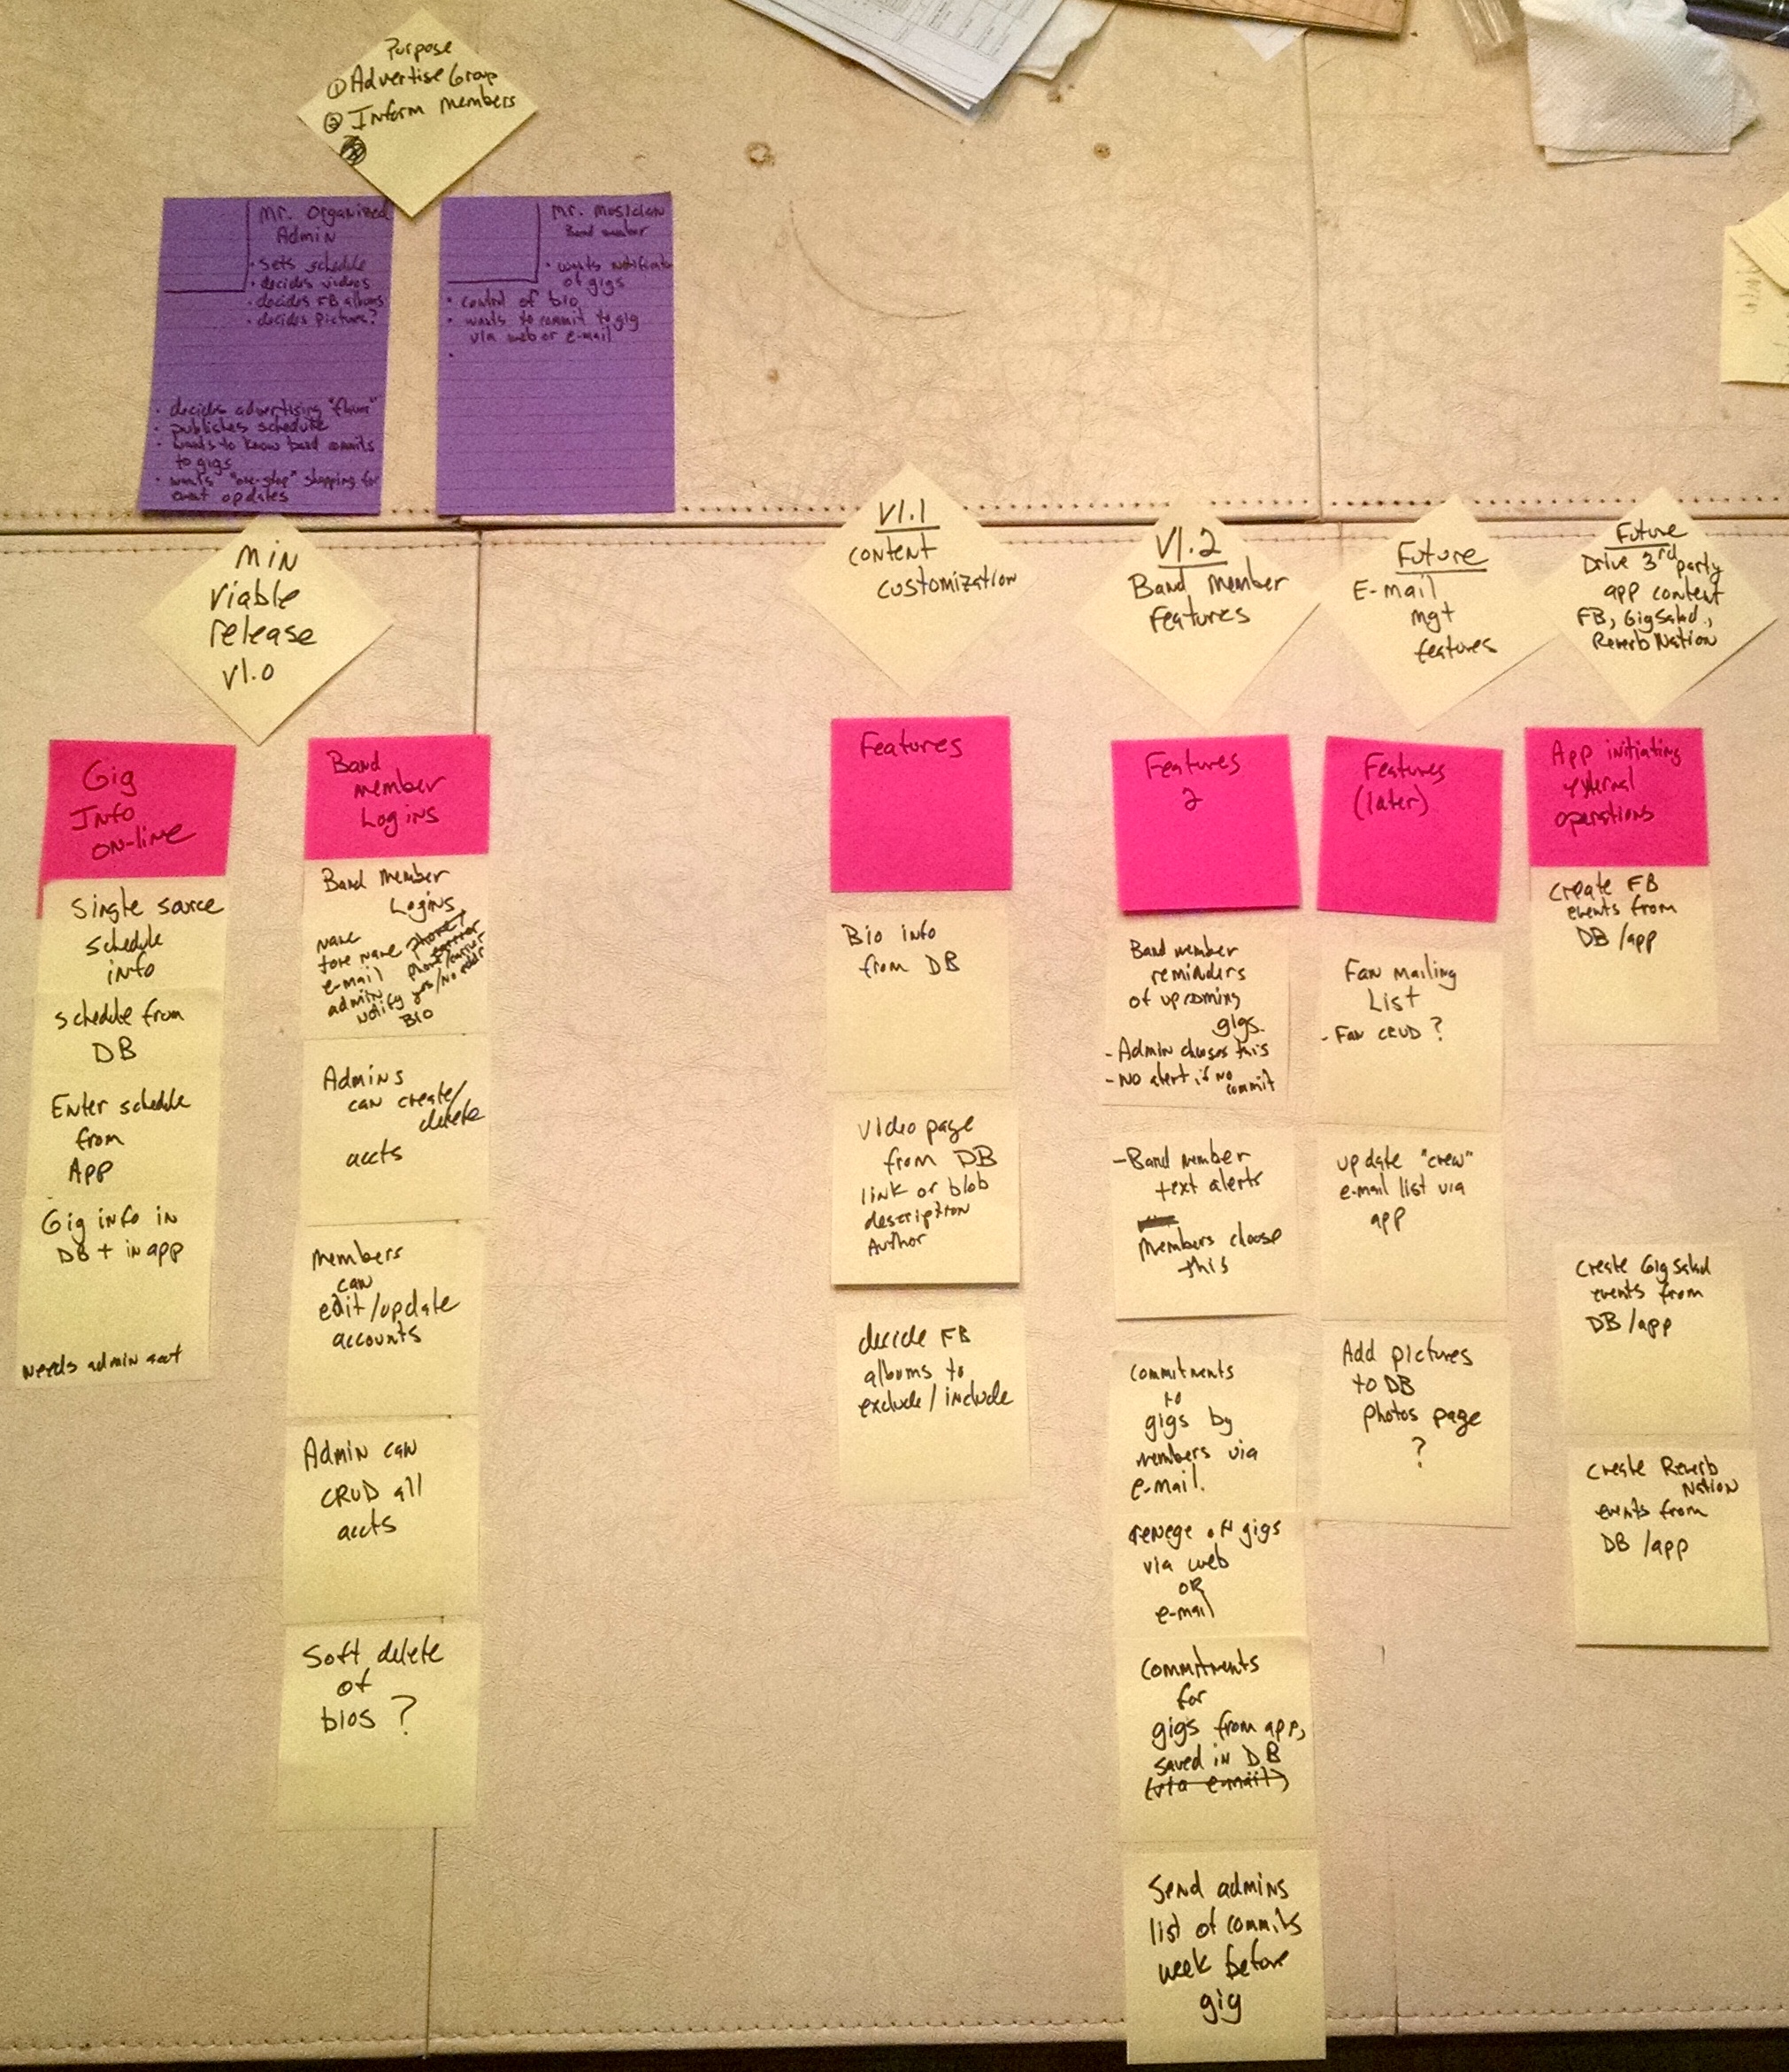 Purpose
① Advertise Group
② Inform members
Mr. Organized
Admin
• sets schedule
• decides videos
• decides FB albums
• decides pictures?
• decides advertising "flow"
• publishes schedule
• wants to know band commits
to gigs
• wants "one-stop" shopping for
event updates
Mr. Musician
Band member
• wants notification
of gigs
• control of bio
• wants to commit to gig
via web or e-mail
•
Min
Viable
release
V1.0
Gig
Info
on-line
Single source
schedule
info
Schedule from
DB
Enter schedule
from
App
Gig info in
DB + in app
Needs admin acct
Band
member
Logins
Band member
Logins
Name
e-mail
admin
phone/carrier
notify yes/no
Bio
Admins
can create/
delete
accts
Members
can
edit/update
accounts
Admin can
CRUD all
accts
Soft delete
of
bios?
V1.1
content
customization
Features
Bio info
from DB
Video page
from DB
link or blob
description
Author
decide FB
albums to
exclude/include
V1.2
Band Member
Features
Features
2
Band member
reminders
of upcoming
gigs.
- Admin chooses this
- No alert if no
commit
- Band member
text alerts
Members choose
this
Commitments
to
gigs by
members via
e-mail.
renege of gigs
via web
OR
e-mail
Commitments
for
gigs from app,
saved in DB
(via e-mail)
Send admins
list of commits
week before
gig
Future
E-mail
mgt
features
Features
(later)
Fan mailing
List
- Fan CRUD?
update "crew"
e-mail list via
app
Add pictures
to DB
photos page
?
Future
Drive 3rd party
app content
FB, GigSalad.,
ReverbNation
App initiating
external
operations
Create FB
events from
DB/app
Create GigSalad
events from
DB/app
Create Reverb
Nation
events from
DB/app